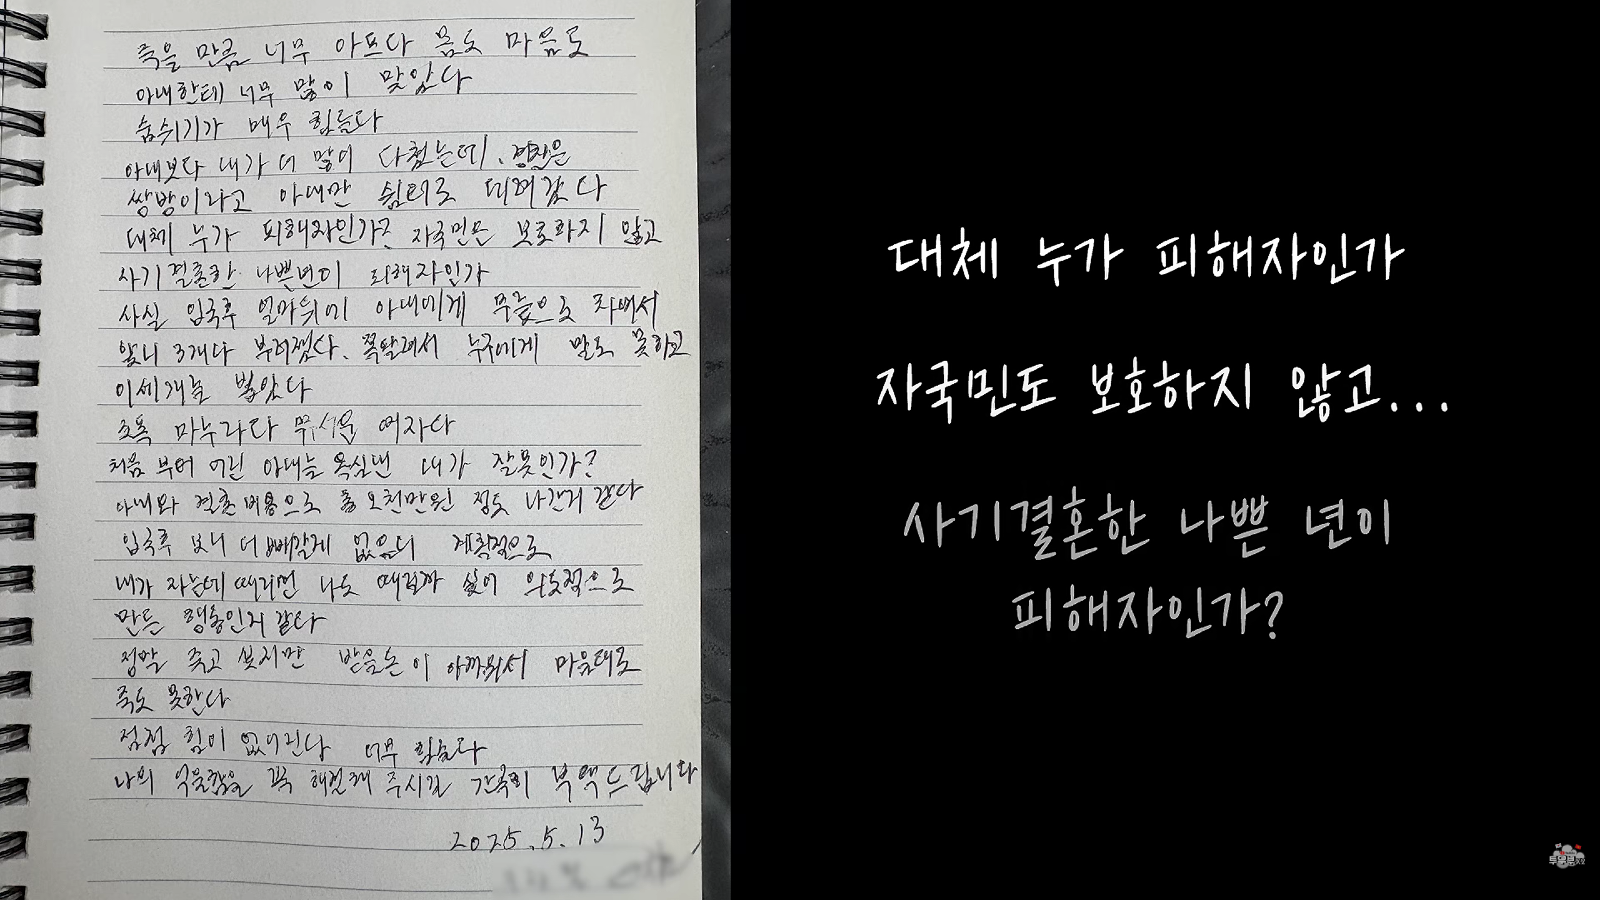 죽을 만큼 너무 아프다 몸도 마음도
아내한테 너무 많이 맞았다
숨쉬기가 매우 힘들다
아내보다 내가 더 많이 다쳤는데, 경찰은
쌍방이라고 아내만 쉼터로 데려갔다
대체 누가 피해자인가? 자국민은 보호하지 않고
사기결혼한 나쁜년이 피해자인가
사실 입국후 얼마뒤에 아내에게 무릎으로 차여서
앞니 3개다 부러졌다. 쪽팔려서 누구에게 말도 못하고
이세개는 뽑았다
초혹 마누라다 무서운 여자다
처음 부터 어린 아내를 욕심낸 내가 잘못인가?
아내와 결혼비용으로 총 오천만원 정도 나간거 같다
입국후 보니 더 빼갈게 없으니 계획적으로
내가 자는데 때리면 나도 때릴까 싶어 의도적으로
만든 행동인거 같다
정말 죽고 싶지만 받을돈이 아까워서 마음대로
죽도 못한다
점점 힘이 없어진다 너무 힘들다
나의 억울함을 꼭 해결해 주시길 간곡히 부탁드립니다
2025.5.13
대체 누가 피해자인가
자국민도 보호하지 않고...
사기결혼한 나쁜 년이
피해자인가?